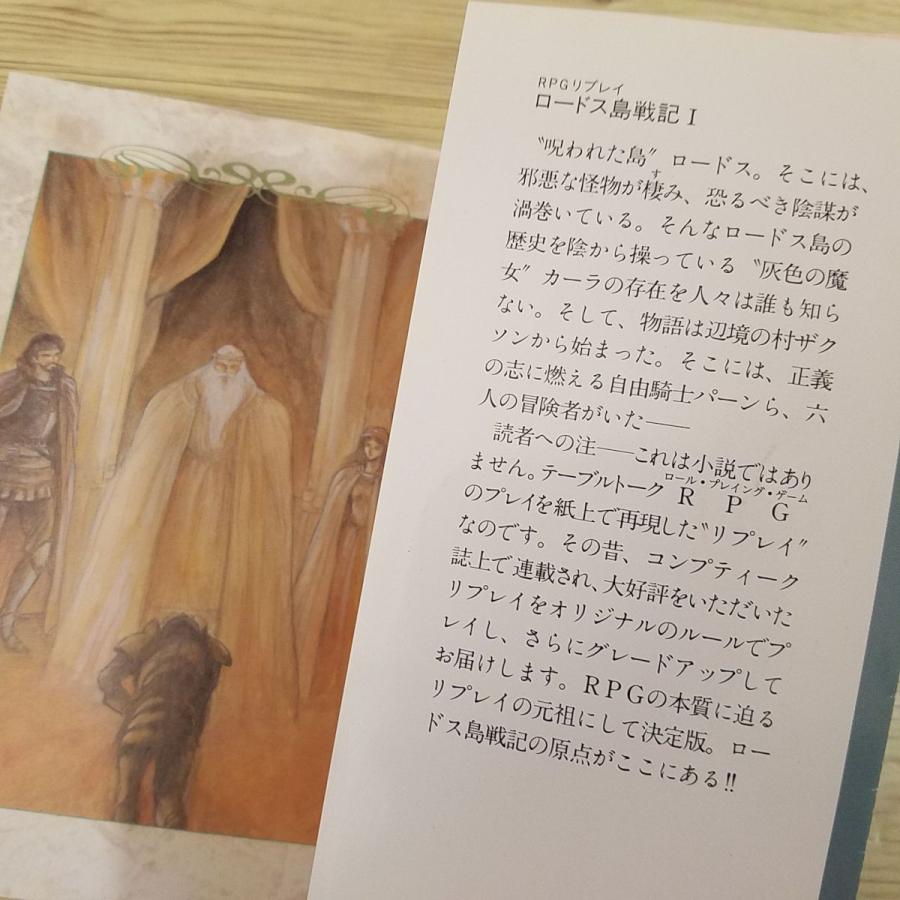 RPGリプレイ
ロードス島戦記 I
〝呪われた島〟ロードス。そこには、
す
邪悪な怪物が棲み、恐るべき陰謀が
渦巻いている。そんなロードス島の
歴史を陰から操っている〝灰色の魔
女〟カーラの存在を人々は誰も知ら
ない。そして、物語は辺境の村ザク
ソンから始まった。そこには、正義
の志に燃える自由騎士パーンら、六
人の冒険者がいた──
読者への注──これは小説ではあり
ロール・プレイング・ゲーム
ません。テーブルトークRPG
のプレイを紙上で再現した〝リプレイ〟
なのです。その昔、コンプティーク
誌上で連載され、大好評をいただいた
リプレイをオリジナルのルールでプ
レイし、さらにグレードアップして
お届けします。RPGの本質に迫る
リプレイの元祖にして決定版。ロー
ドス島戦記の原点がここにある!!